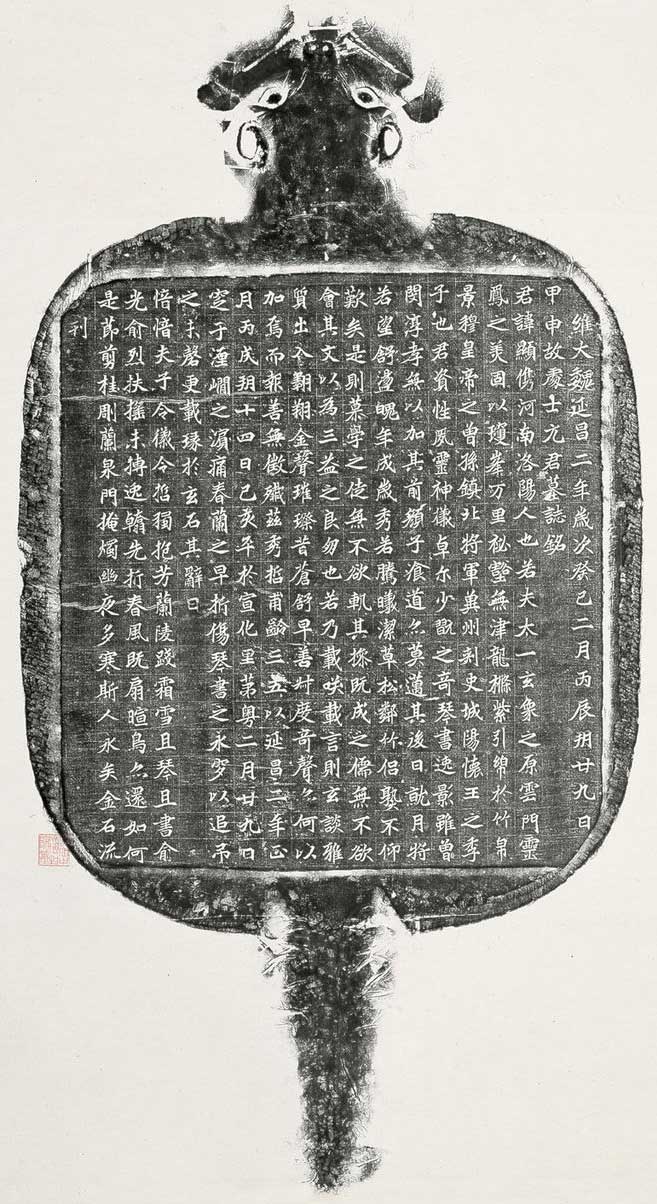 維大魏延昌二年歲次癸巳二月丙辰朔廿九日
甲申故處士元君墓誌銘
君諱顯儁河南洛陽人也若夫太一玄象之原雲門靈
鳳之美固以瓊峯万里秘壑無津龍櫛紫引綿於竹帛
景穆皇帝之曾孫鎮北將軍冀州刺史城陽懷王之季
子也君資性夙靈神儀卓尔少翫之奇琴書逸影雖曾
閔淳孝無以加其前顏子飡道亦莫邁其後日就月將
若望舒盪魄年成歲秀若騰曦潔草松鄰竹侶熟不仰
歎矣是則慕學之徒無不欲軌其操既成之儒無不欲
會其文以為三益之良朋也若乃載咲載言則玄談雅
質出入翱翔金聲璀璨昔蒼舒早善对度奇聲亦何以
加焉而報善無徵殲茲秀哲甫齡三五以延昌二年正
月丙戌朔十四日己亥卒於宣化里第粵二月廿九日
窆于瀍澗之濱痛春蘭之早折傷琴書之永穸以追吊
之未磬更載琢於玄石其辭曰
愔愔夫子令儀令哲獨抱芳蘭陵踐霜雪且琴且書俞
光俞烈扶搖未摶逸翰先折春風既扇暄鳥亦還如何
是節剪桂彫蘭泉門掩燭幽夜多寒斯人永矣金石流
刊